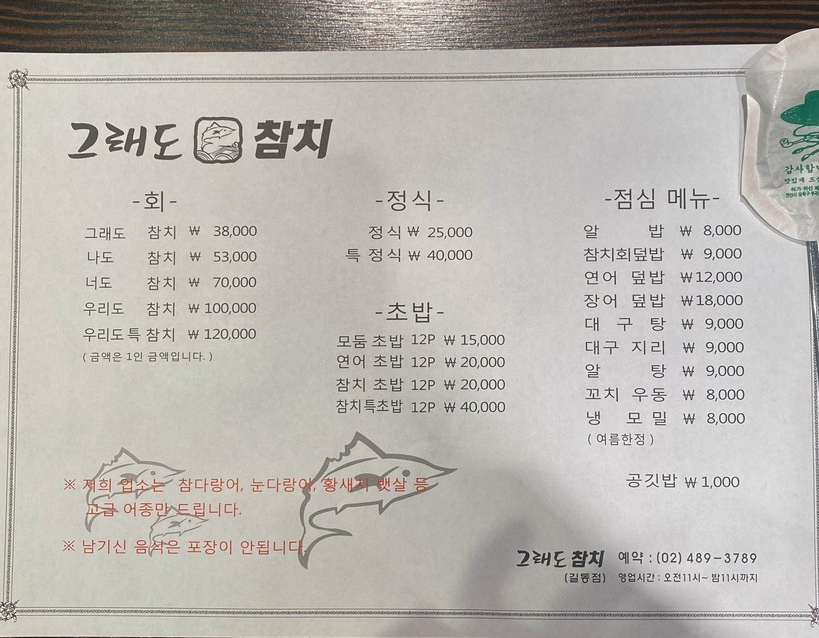 그래도 참치
-회-
그래도 참치 ₩ 38,000
나도 참치 ₩ 53,000
너도 참치 ₩ 70,000
우리도 참치 ₩ 100,000
우리도특 참치 ₩ 120,000
( 금액은 1인 금액입니다. )
-정식-
정식 ₩ 25,000
특 정식 ₩ 40,000
-초밥-
모둠 초밥 12P ₩ 15,000
연어 초밥 12P ₩ 20,000
참치 초밥 12P ₩ 20,000
참치특초밥 12P ₩ 40,000
-점심 메뉴-
알 밥 ₩ 8,000
참치회덮밥 ₩ 9,000
연어 덮밥 ₩12,000
장어 덮밥 ₩18,000
대 구 탕 ₩ 9,000
대구 지리 ₩ 9,000
알 탕 ₩ 9,000
꼬치 우동 ₩ 8,000
냉 모 밀 ₩ 8,000
( 여름한정 )
공깃밥 ₩ 1,000
※ 저희 업소는 참다랑어, 눈다랑어, 황새치 뱃살 등
고급 어종만 드립니다.
※ 남기신 음식은 포장이 안됩니다.
그래도 참치 예약 : (02) 489-3789
(길동점) 영업시간 : 오전11시~ 밤11시까지